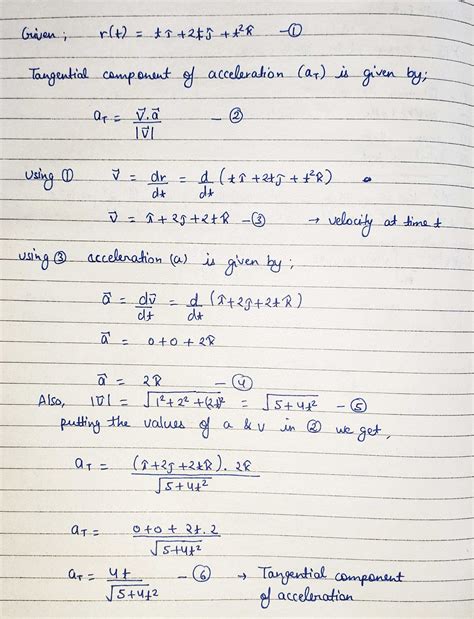 Given ; r(t) = tî + 2tĵ + t²k̂ — ①
Tangential component of acceleration (aT) is given by;
aT = v⃗.a⃗ / |v⃗| — ②
using ① v⃗ = dr/dt = d/dt (tî + 2tĵ + t²k̂)
v⃗ = î + 2ĵ + 2tk̂ — ③ → velocity at time t
using ③ acceleration (a) is given by ;
a⃗ = dv⃗/dt = d/dt (î + 2ĵ + 2tk̂)
a⃗ = 0 + 0 + 2k̂
a⃗ = 2k̂ — ④
Also, |v⃗| = √(1² + 2² + (2t)²) = √(5 + 4t²) — ⑤
putting the values of a & v in ② we get,
aT = (î + 2ĵ + 2tk̂) . 2k̂ / √(5 + 4t²)
aT = 0 + 0 + 2t . 2 / √(5 + 4t²)
aT = 4t / √(5 + 4t²) — ⑥ → Tangential component
of acceleration